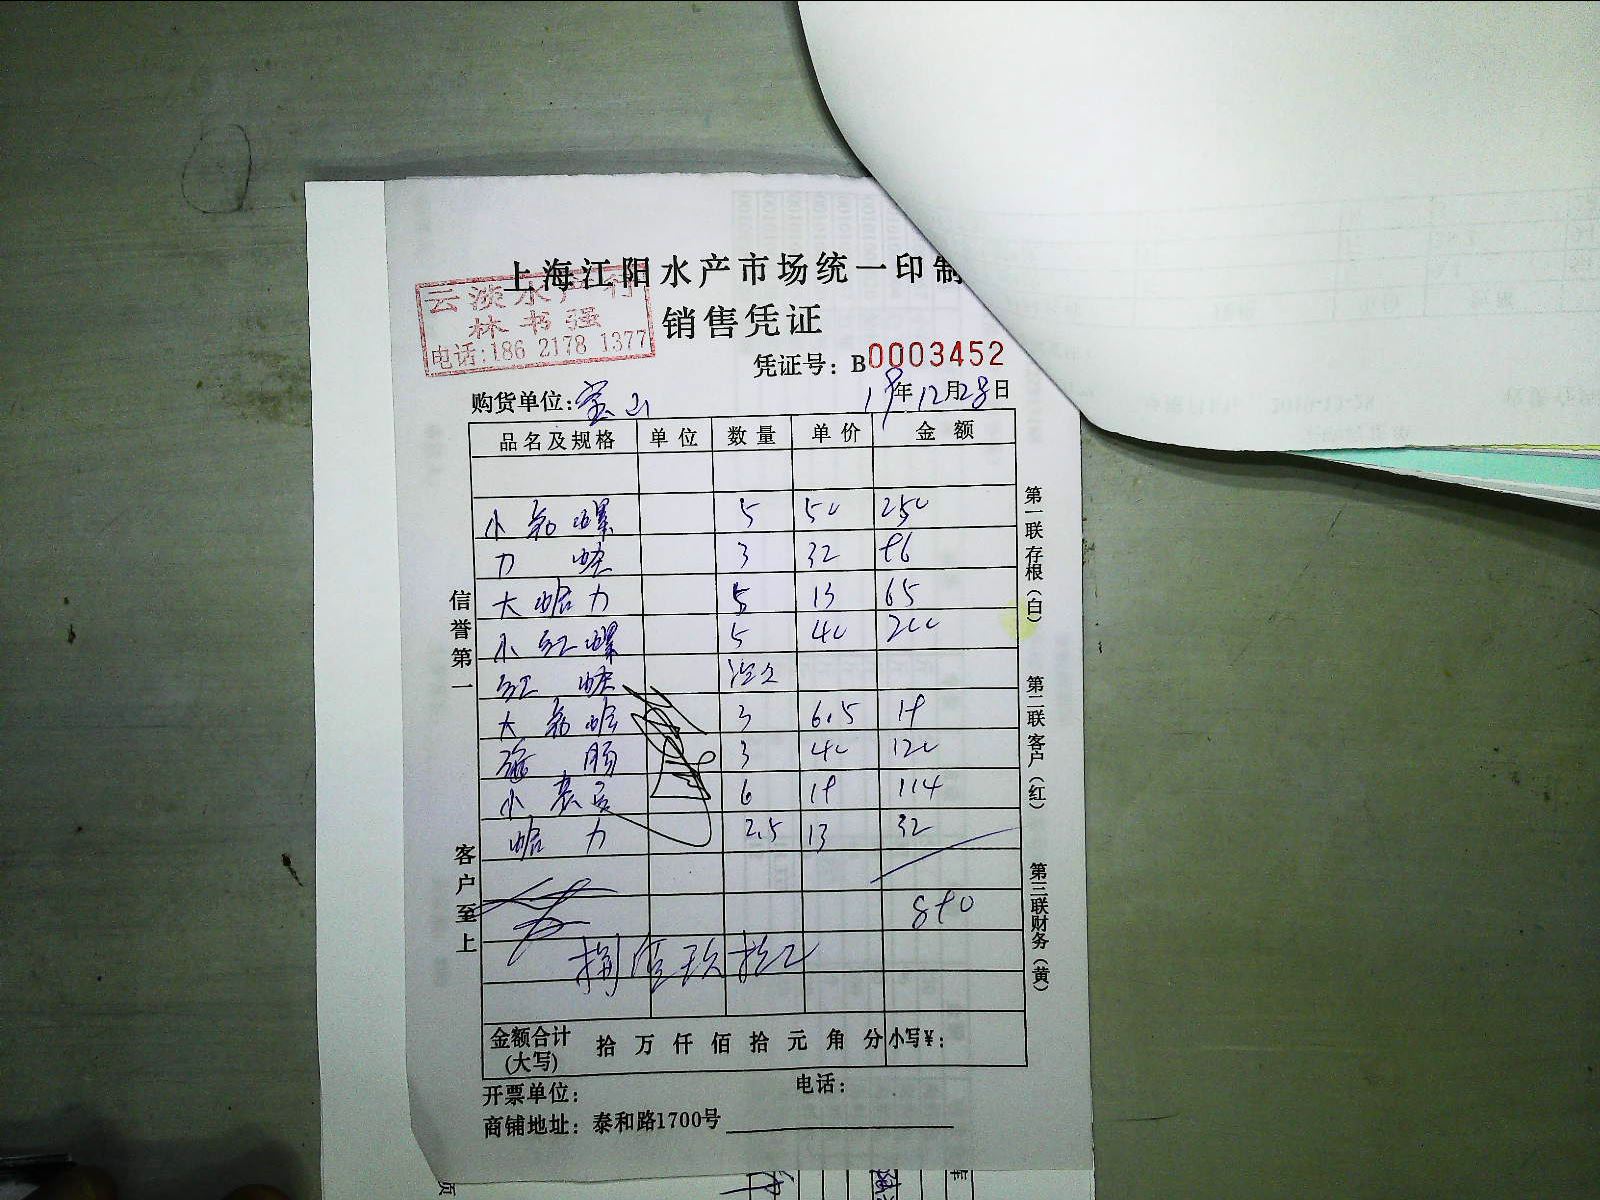 上海江阳水产市场统一印制
云淡水产行
林书强
电话:186 2178 1377
销售凭证
凭证号: B0003452
购货单位:宝山 19年12月28日
品名及规格 单位 数量 单价 金额
小 螺 5 50 250
力 3 32 96
大蛤力 5 13 65
小红螺 5 40 200
红
大 蛤 3 6.5 19
海肠 3 40 120
小 6 19 114
蛤力 2.5 13 32
890
捌佰玖拾元
金额合计 拾 万 仟 佰 拾 元 角 分 小写¥:
(大写)
开票单位: 电话:
商铺地址: 泰和路1700号
信誉第一
客户至上
第一联 存根(白)
第二联 客户(红)
第三联 财务(黄)